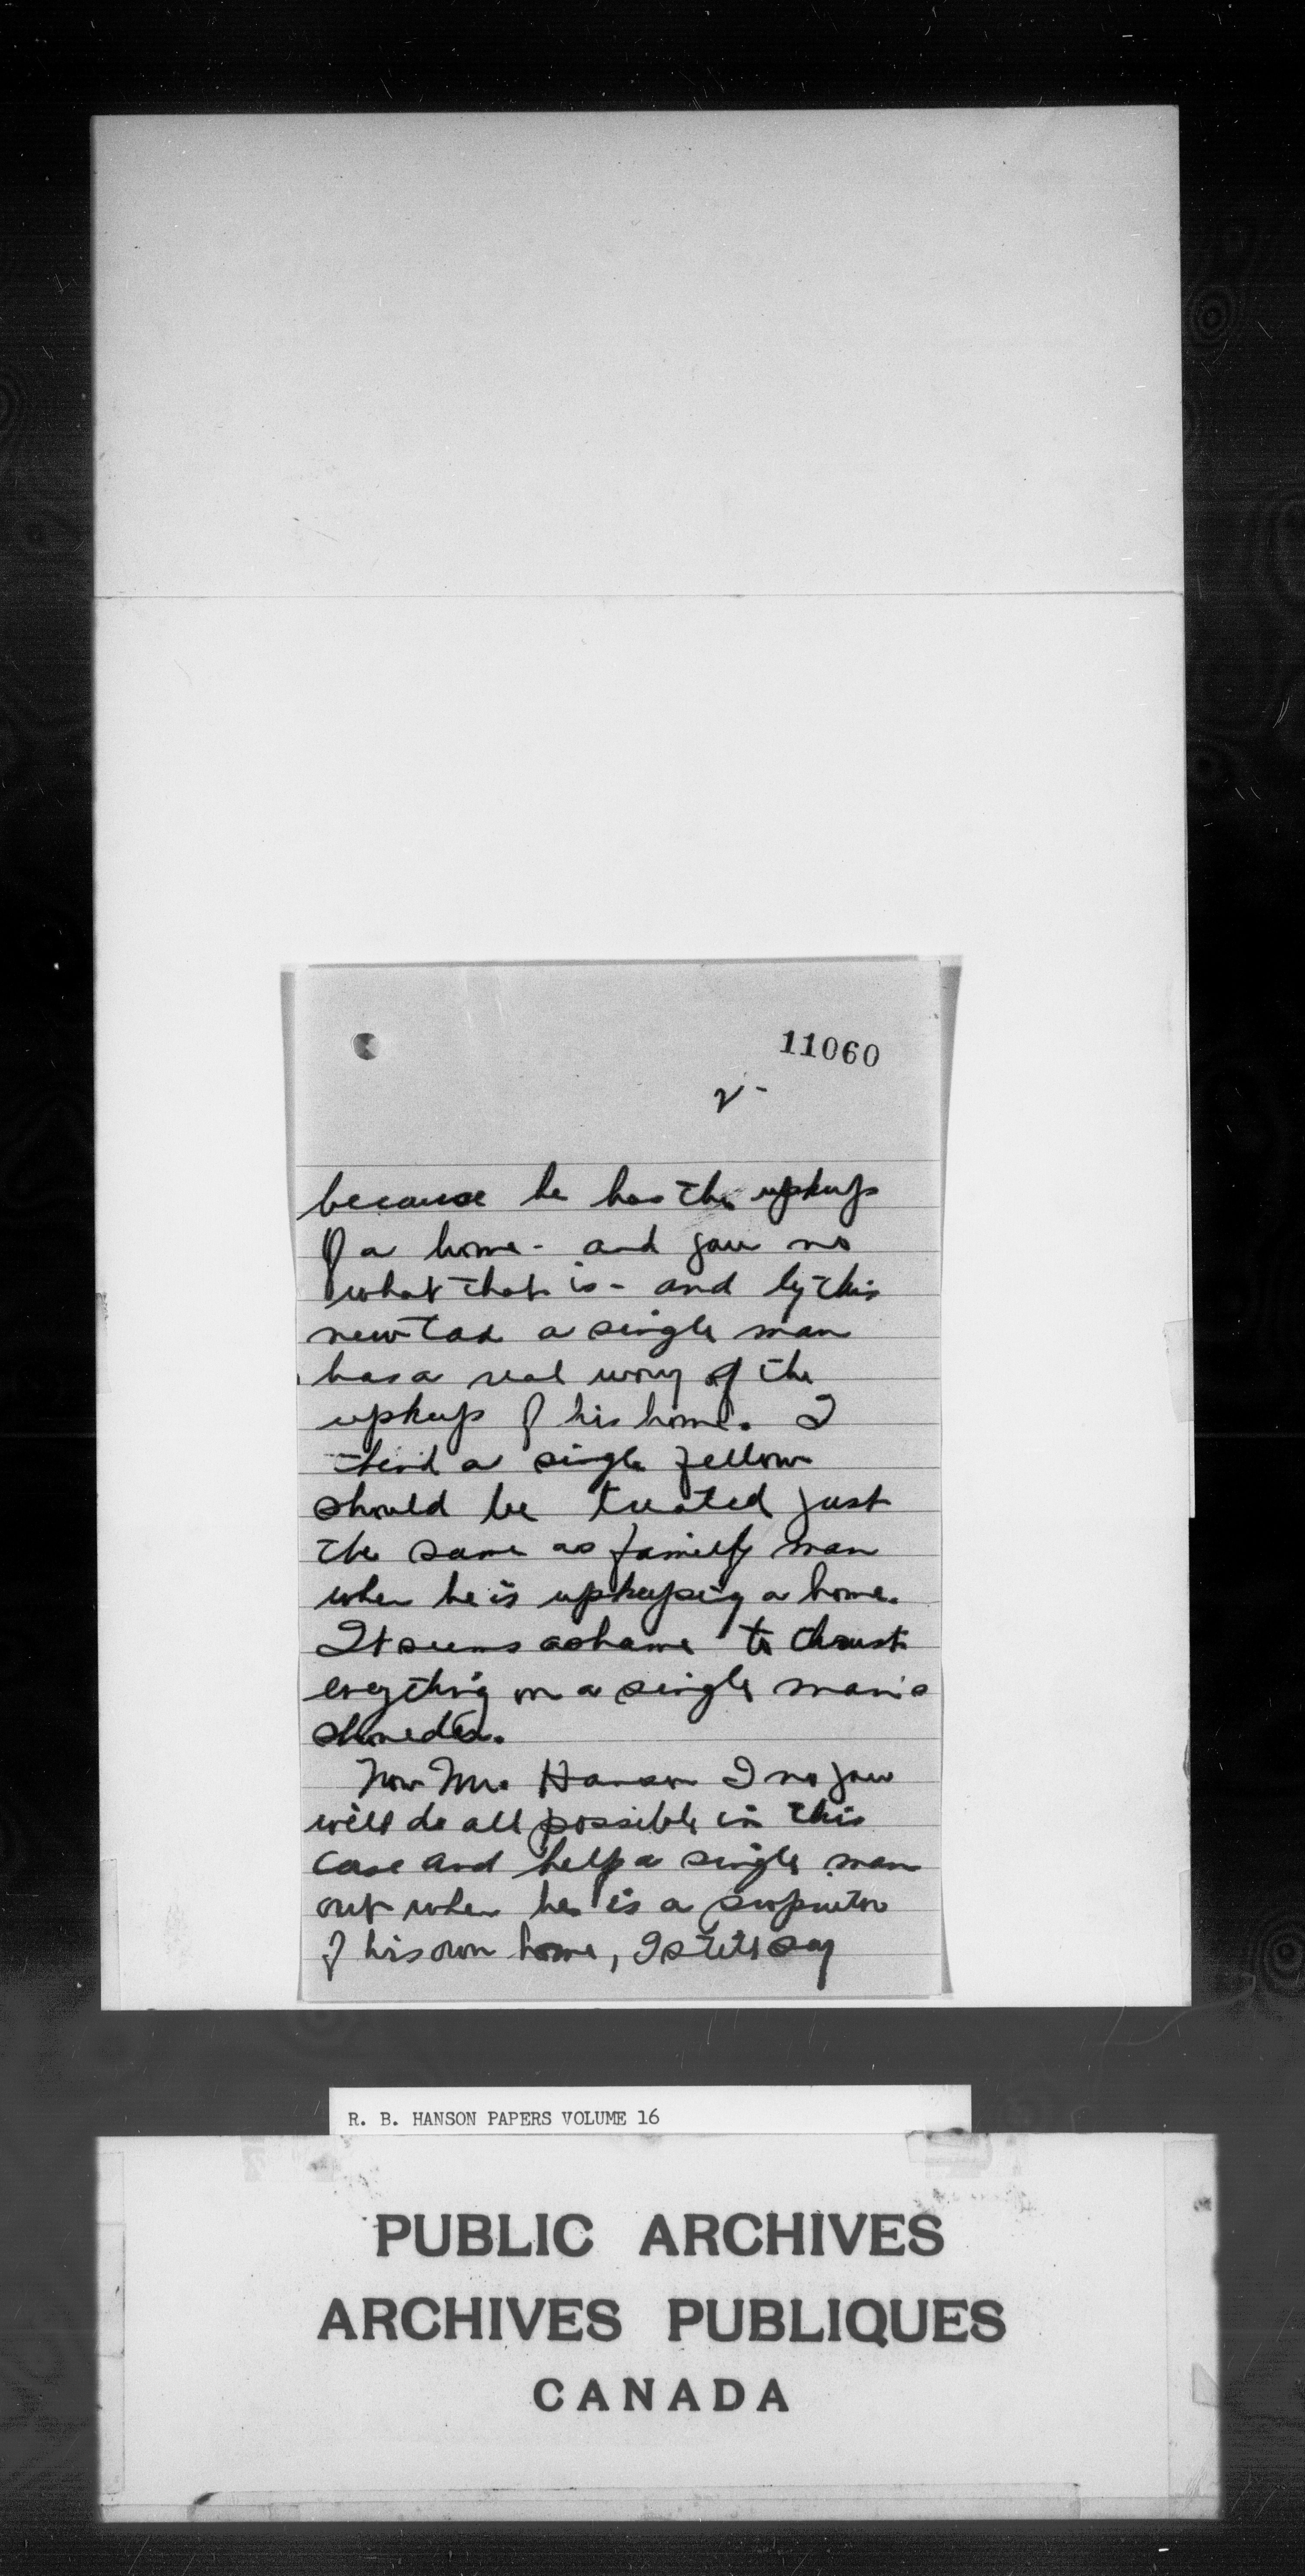 11060
2-
because he has the upkeep
of a home - and you no
what that is - and by this
new tax a single man
has a real worry of the
upkeep of his home. I
think a single fellow
should be treated just
the same as family man
when he is upkeeping a home.
It seems ashame to thrust
everything on a single man's
shoulder.
Now Mr. Hanson I no you
will do all possible in this
case and help a single man
out when he is a proprietor
of his own home, I still say
R. B. HANSON PAPERS VOLUME 16
PUBLIC ARCHIVES
ARCHIVES PUBLIQUES
CANADA